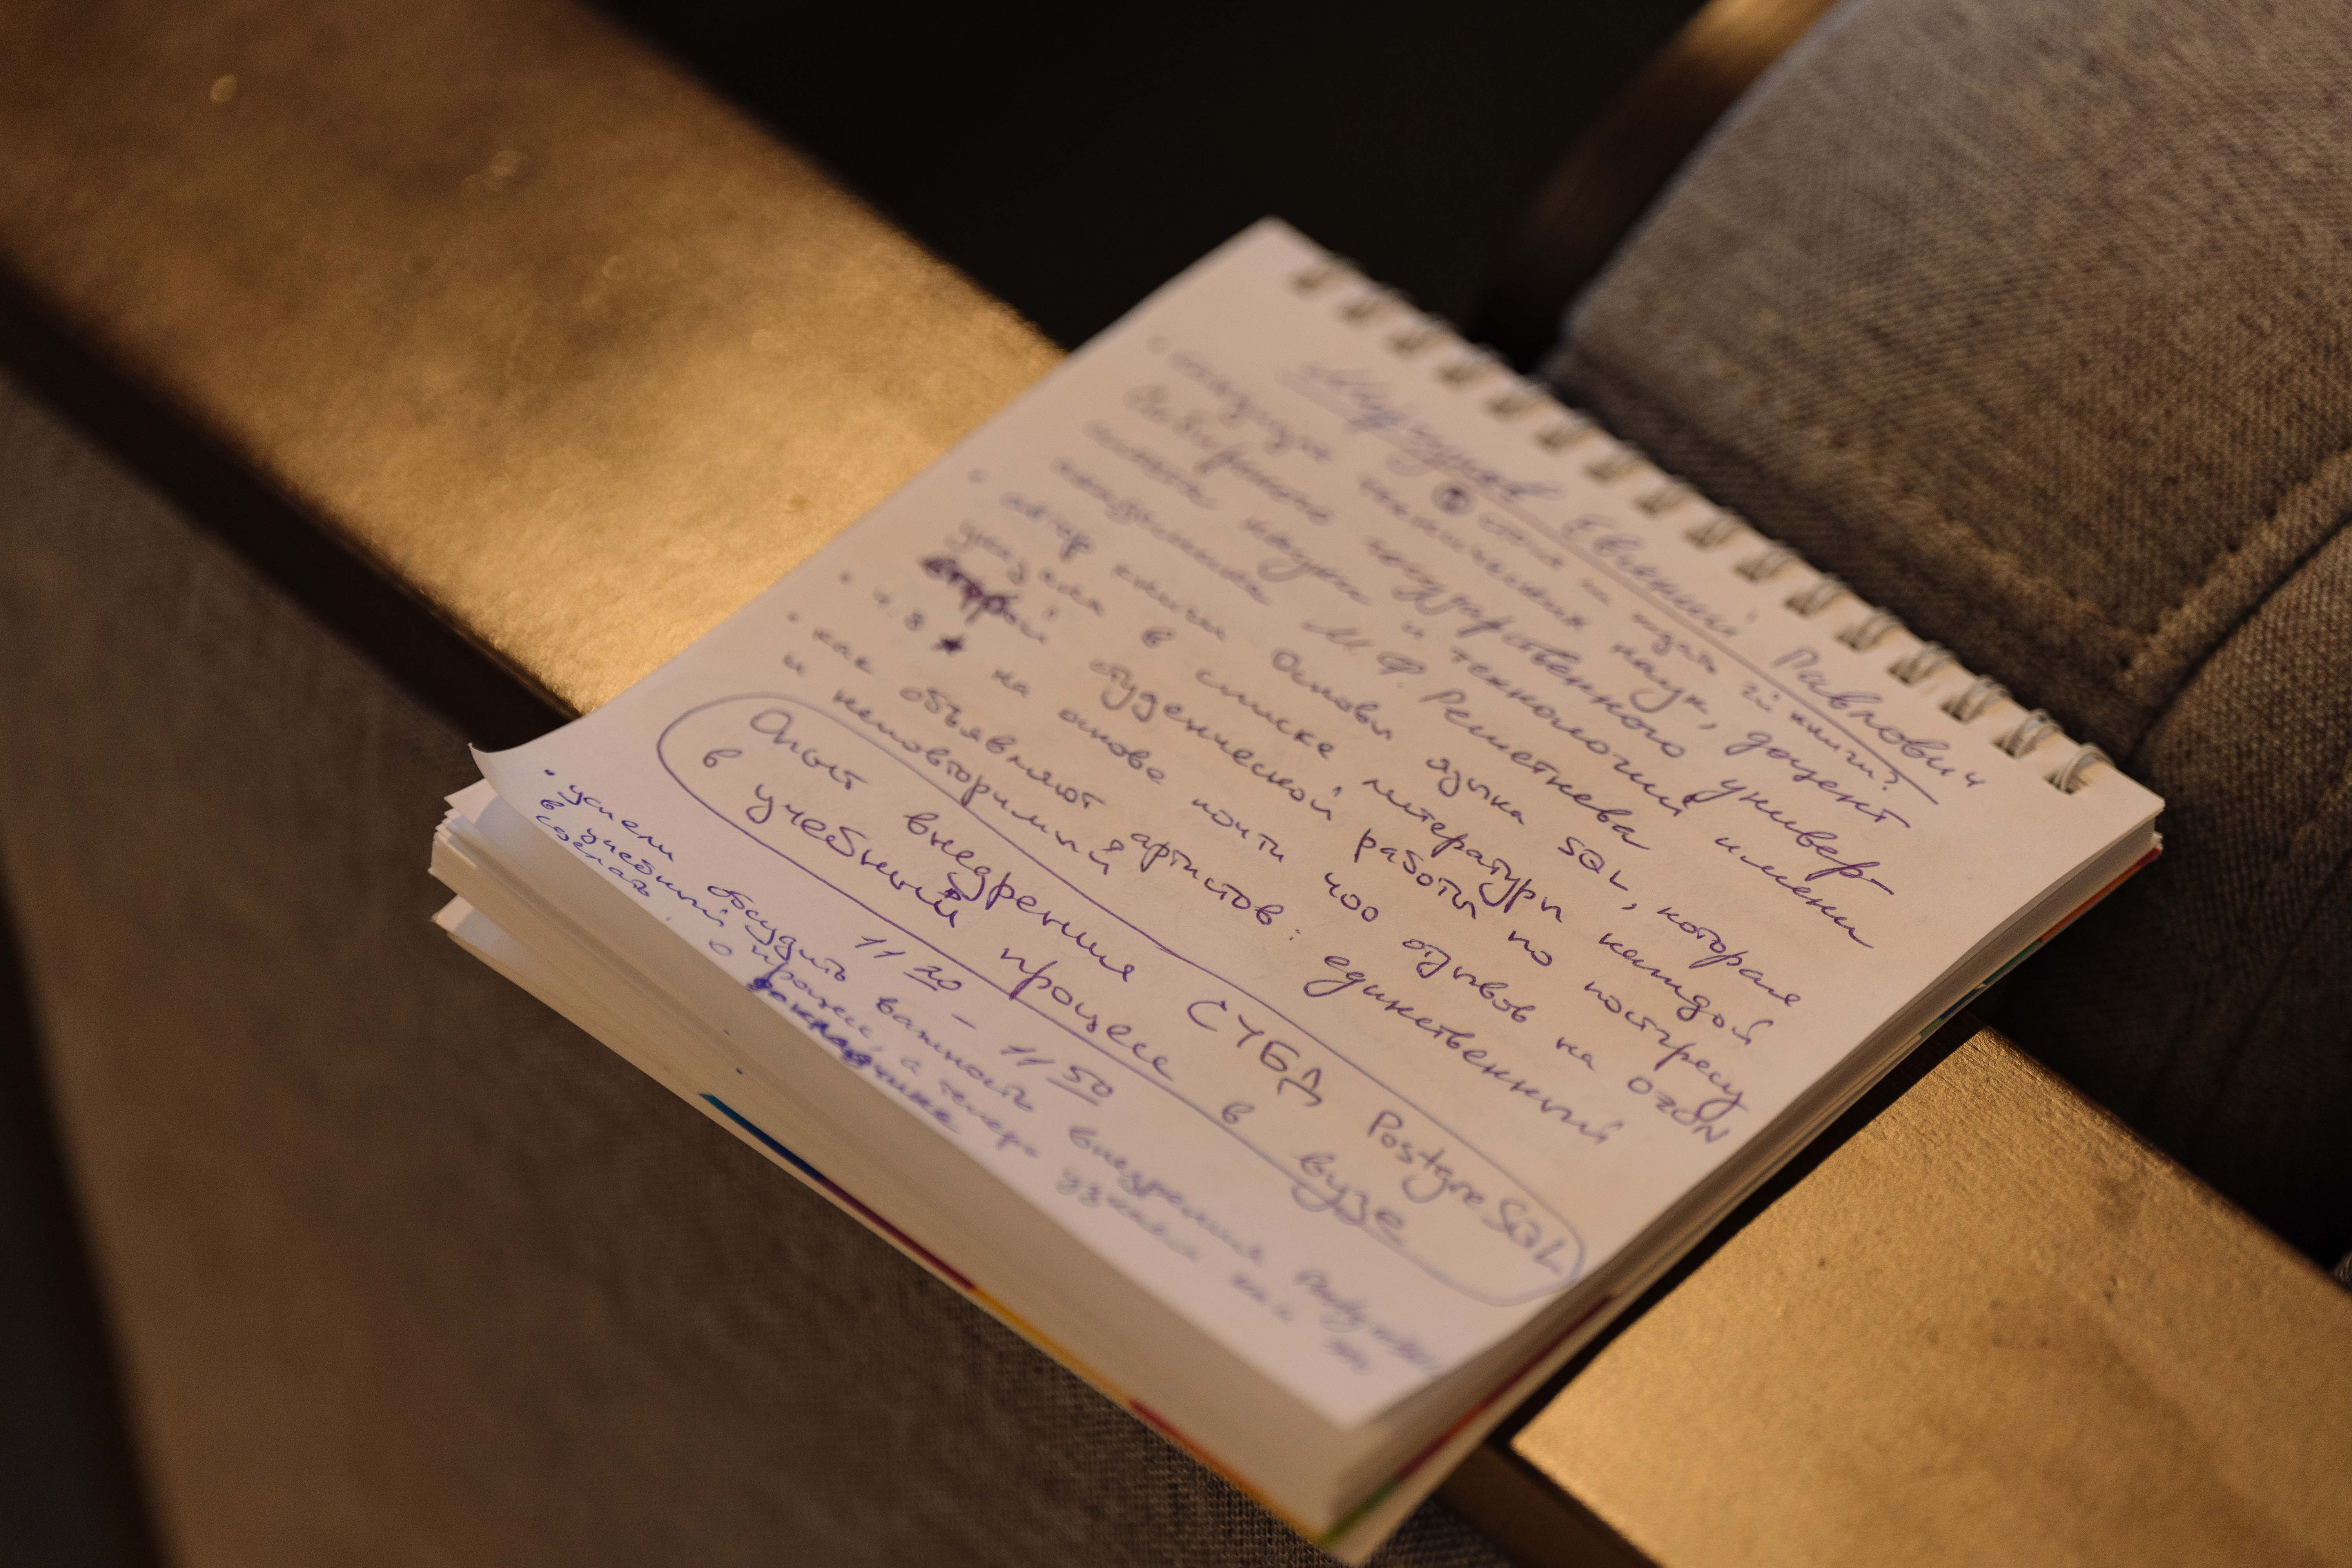 Моргунов Евгений Павлович
сдача на издат 2й книги?
• кандидат технических наук, доцент
Сибирского государственного универ-
ситета науки и технологий имени
академика М.Ф. Решетнева
• автор книги Основы языка SQL, которая
указана в списке литературы каждой
второй студенческой работы по постгресу
• 4.8 ★ на основе почти 400 отзывов на OZON
• как объявляют артистов: единственный
и неповторимый
Опыт внедрения СУБД PostgreSQL
в учебный процесс в вузе
11 20 – 11 50
• успели обсудить важность внедрения
в учебный процесс, а теперь узнаем как
сделать
о докладчике